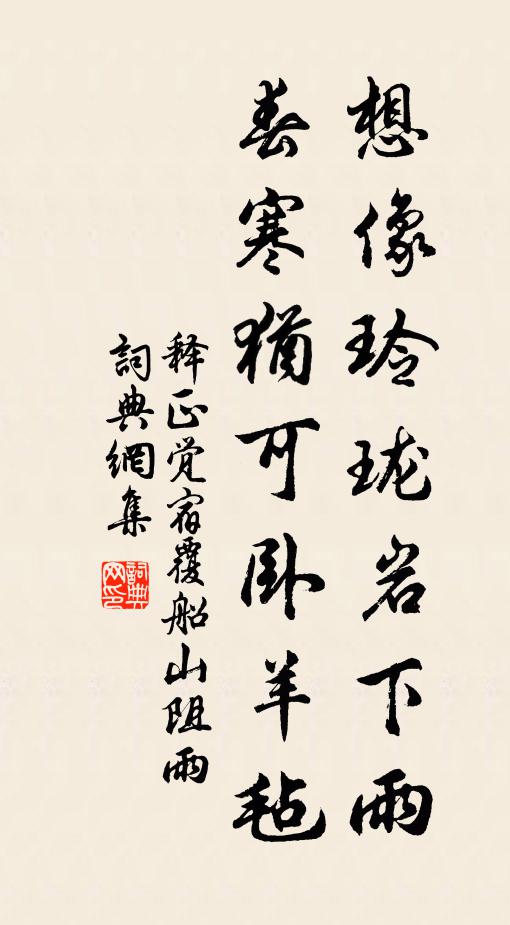 想像玲珑岩下雨
春寒犹可卧羊毡
释正觉宿覆船山阻雨
詞典網集
詞典网印